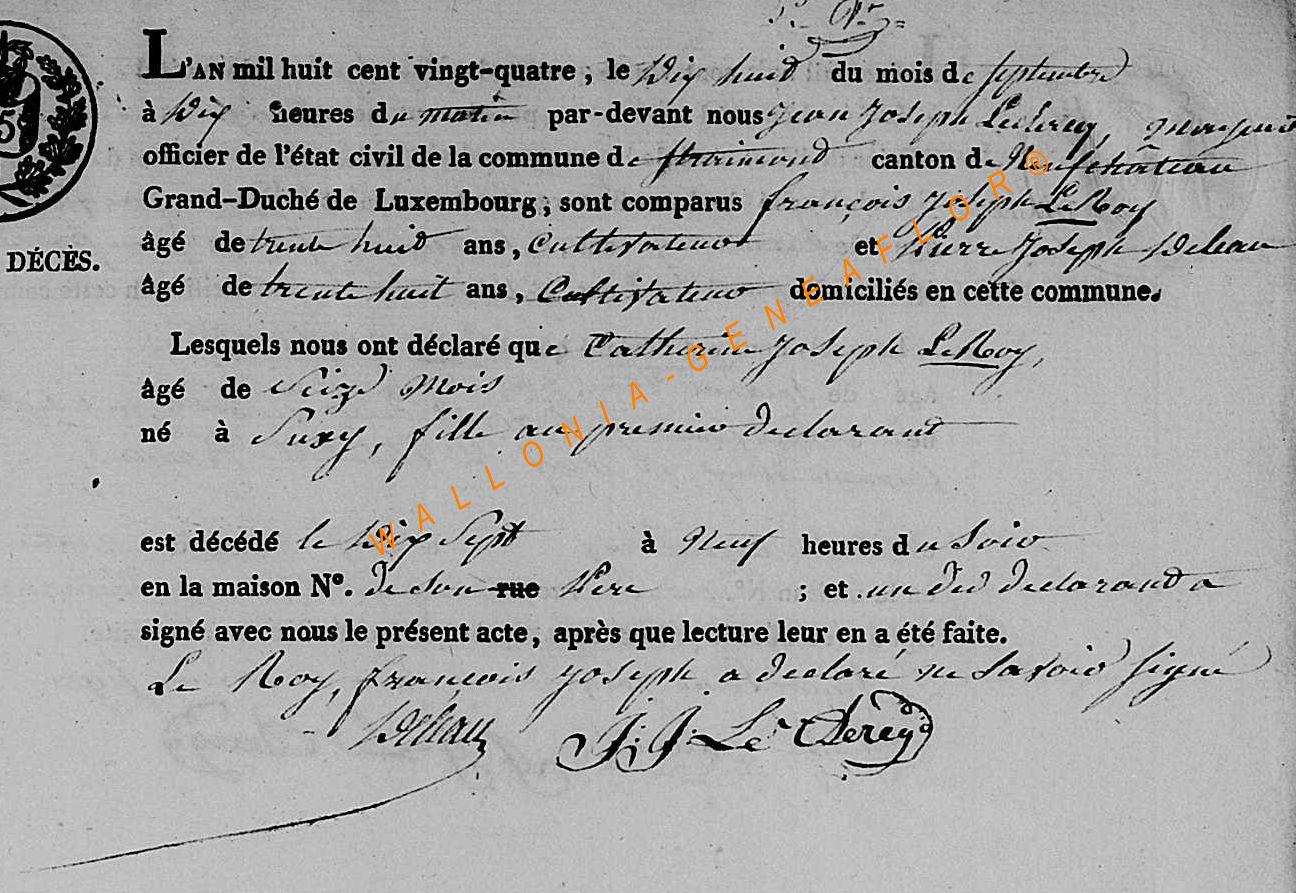 L'AN mil huit cent vingt-quatre, le Dix huit du mois de septembre
à Dix heures du matin par-devant nous Jean Joseph Leclercq,
officier de l'état civil de la commune de straimond canton de Neufchâteau
Grand-Duché de Luxembourg; sont comparus françois Joseph Le Roy
DÉCÈS.
âgé de trente huit ans, Cultivateur et Pierre Joseph Deleau
âgé de trente huit ans, Cultivateur domiciliés en cette commune.
Lesquels nous ont déclaré que Catherine Joseph Le Roy,
âgé de Seize Mois
né à Suxy, fille au premier declarant
est décédé le Dix Sept à Neuf heures du Soir
en la maison N°. de son rue Pere ; et un des declarant a
signé avec nous le présent acte, après que lecture leur en a été faite.
Le Roy, françois Joseph a declaré ne Savoir signé
Deleau J: J: Le Clercq
WALLONIA-GENEAFLOR®